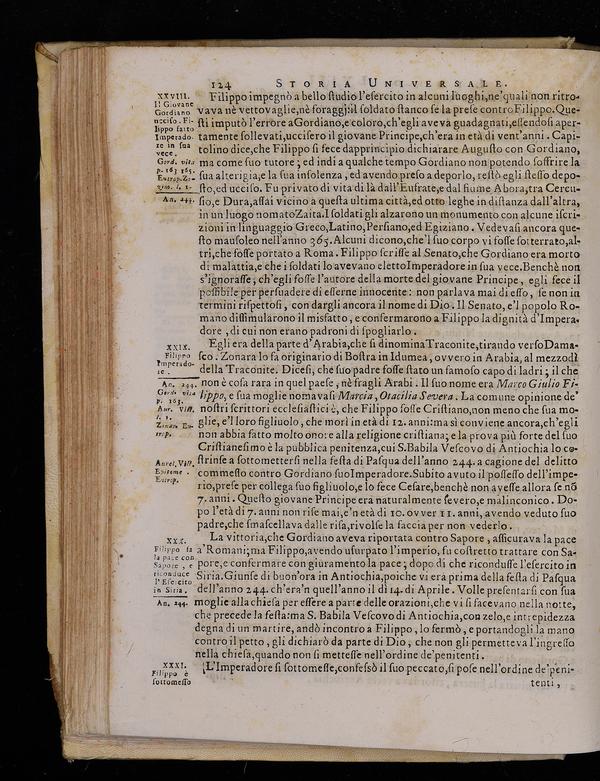 124 STORIA UNIVERSALE.
XXVIII.
Il Giovane
Gordiano
ucciso. Fi-
lippo fatto
Imperado-
re in sua
vece.
Gord. vita
p. 163 165.
Eutrop. Zo-
zimo. l. 1.
An. 244.
Filippo impegnò a bello studio l'esercito in alcuni luoghi, ne' quali non ritro-
vava nè vettovaglie, nè foraggj: il soldato stanco se la prese contro Filippo. Que-
sti imputò l'errore a Gordiano, e coloro, ch'egli aveva guadagnati, essendosi aper-
tamente sollevati, uccisero il giovane Principe, ch'era in età di vent'anni. Capi-
tolino dice, che Filippo si fece dapprincipio dichiarare Augusto con Gordiano,
ma come suo tutore; ed indi a qualche tempo Gordiano non potendo soffrire la
sua alterigia, e la sua insolenza, ed avendo preso a deporlo, restò egli stesso depo-
sto, ed ucciso. Fu privato di vita di là dall'Eufrate, e dal fiume Abora, tra Cercu-
sio, e Dura, assai vicino a questa ultima città, ed otto leghe in distanza dall'altra,
in un luogo nomato Zaita. I soldati gli alzarono un monumento con alcune iscri-
zioni in linguaggio Greco, Latino, Persiano, ed Egiziano. Vedevasi ancora que-
sto mausoleo nell'anno 365. Alcuni dicono, che'l suo corpo vi fosse sotterrato, al-
tri, che fosse portato a Roma. Filippo scrisse al Senato, che Gordiano era morto
di malattia, e che i soldati lo avevano eletto Imperadore in sua vece. Benchè non
s'ignorasse; ch'egli fosse l'autore della morte del giovane Principe, egli fece il
possibile per persuadere di esserne innocente: non parlava mai di esso, se non in
termini rispettosi, con dargli ancora il nome di Dio. Il Senato, e'l popolo Ro-
mano dissimularono il misfatto, e confermarono a Filippo la dignità d'Impera-
dore, di cui non erano padroni di spogliarlo.
XXIX.
Filippo
Imperado-
re.
An. 244.
Gord. vita
p. 163.
Aur. Vitt.
Zonar. Eu-
trop.
Aurel. Vitt.
Epitome.
Eutrop.
Egli era della parte d'Arabia, che si dinomina Traconite, tirando verso Dama-
sco. Zonara lo fa originario di Bostra in Idumea, ovvero in Arabia, al mezzodì
della Traconite. Dicesi, che suo padre fosse stato un famoso capo di ladri; il che
non è cosa rara in quel paese, nè fragli Arabi. Il suo nome era Marco Giulio Fi-
lippo, e sua moglie nomavasi Marcia, Otacilia Severa. La comune opinione de'
nostri scrittori ecclesiastici è, che Filippo fosse Cristiano, non meno che sua mo-
glie, e'l loro figliuolo, che morì in età di 12. anni: ma si conviene ancora, ch'egli
non abbia fatto molto onore alla religione cristiana; e la prova più forte del suo
Cristianesimo è la pubblica penitenza, cui S. Babila Vescovo di Antiochia lo co-
strinse a sottomettersi nella festa di Pasqua dell'anno 244. a cagione del delitto
commesso contro Gordiano suo Imperadore. Subito avuto il possesso dell'impe-
rio, prese per collega suo figliuolo, e lo fece Cesare, benchè non avesse allora se nõ
7. anni. Questo giovane Principe era naturalmente severo, e malinconico. Do-
po l'età di 7. anni non rise mai, e'n età di 10. ovver 11. anni, avendo veduto suo
padre, che smascellava dalle risa, rivolse la faccia per non vederlo.
XXX.
Filippo fa
la pace con
Sapore, e
riconduce
l'Esercito
in Siria.
An. 244.
La vittoria, che Gordiano aveva riportata contro Sapore, assicurava la pace
a' Romani; ma Filippo, avendo usurpato l'imperio, fu costretto trattare con Sa-
pore, e confermare con giuramento la pace; dopo di che ricondusse l'esercito in
Siria. Giunse di buon'ora in Antiochia, poiche vi era prima della festa di Pasqua
dell'anno 244. ch'era'n quell'anno il dì 14. di Aprile. Volle presentarsi con sua
moglie alla chiesa per essere a parte delle orazioni, che vi si facevano nella notte,
che precede la festa: ma S. Babila Vescovo di Antiochia, con zelo, e intrepidezza
degna di un martire, andò incontro a Filippo, lo fermò, e portandogli la mano
contro il petto, gli dichiarò da parte di Dio, che non gli permetteva l'ingresso
nella chiesa, quando non si mettesse nell'ordine de' penitenti.
XXXI.
Filippo è
sottomesso
L'Imperadore si sottomesse, confessò il suo peccato, si pose nell'ordine de' peni-
tenti,